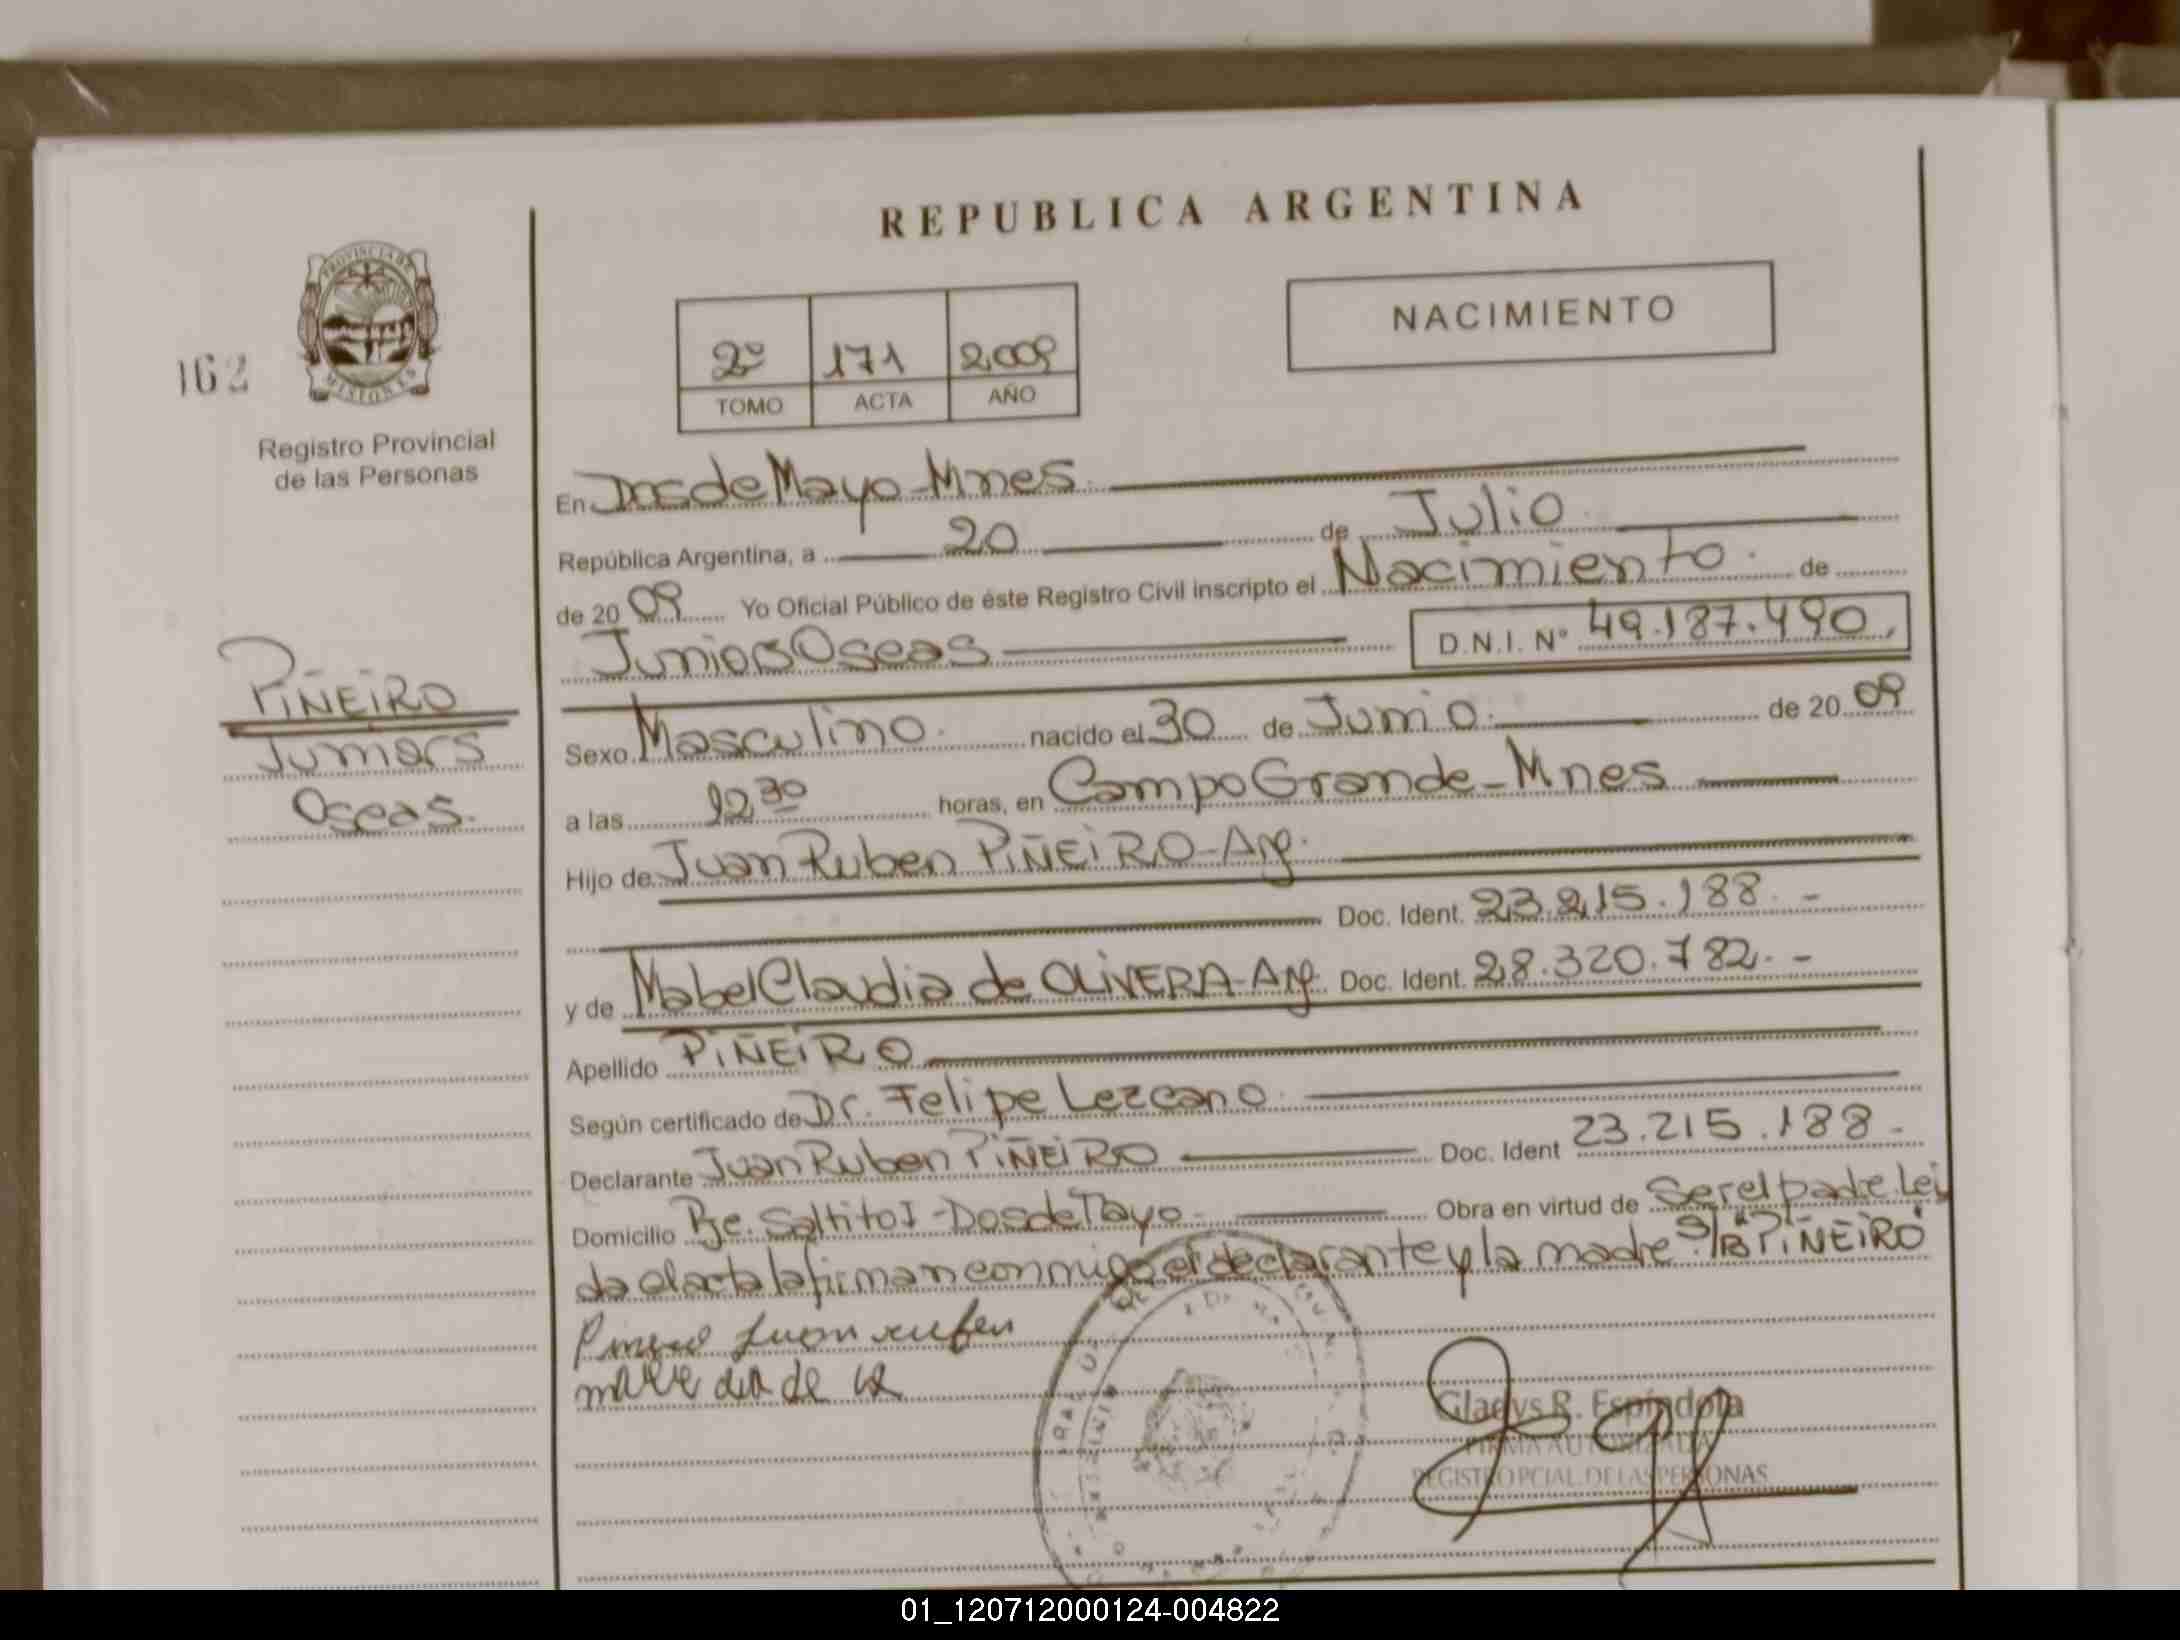 REPUBLICA ARGENTINA
PROVINCIA DE
MISIONES
162
Registro Provincial
de las Personas
2º 171 2.009
TOMO ACTA AÑO
NACIMIENTO
En Dos de Mayo - Mnes.
República Argentina, a 20 de Julio
de 20 09 Yo Oficial Público de éste Registro Civil inscripto el Nacimiento. de
Juniors Oseas D.N.I. Nº 49.187.490.
PIÑEIRO
Juniors
Oseas.
Sexo Masculino. nacido el 30 de Junio. de 20 09
a las 12,30 horas, en Campo Grande - Mnes
Hijo de Juan Ruben PIÑEIRO - Arg.
Doc. Ident. 23.215.188.-
y de Mabel Claudia de OLIVERA - Arg. Doc. Ident. 28.320.782.-
Apellido PIÑEIRO
Según certificado de Dr. Felipe Lezcano.
Declarante Juan Ruben PIÑEIRO Doc. Ident 23.215.188.-
Domicilio Pje. Saltito I - Dos de Mayo - Obra en virtud de Ser el padre. Lei
da el acta la firman conmigo el declarante y la madre S/B PIÑEIRO
Piñeiro Juan ruben
Gladys R. Espíndola
FIRMA AUTORIZADA
REGISTRO PCIAL. DE LAS PERSONAS
01_120712000124-004822